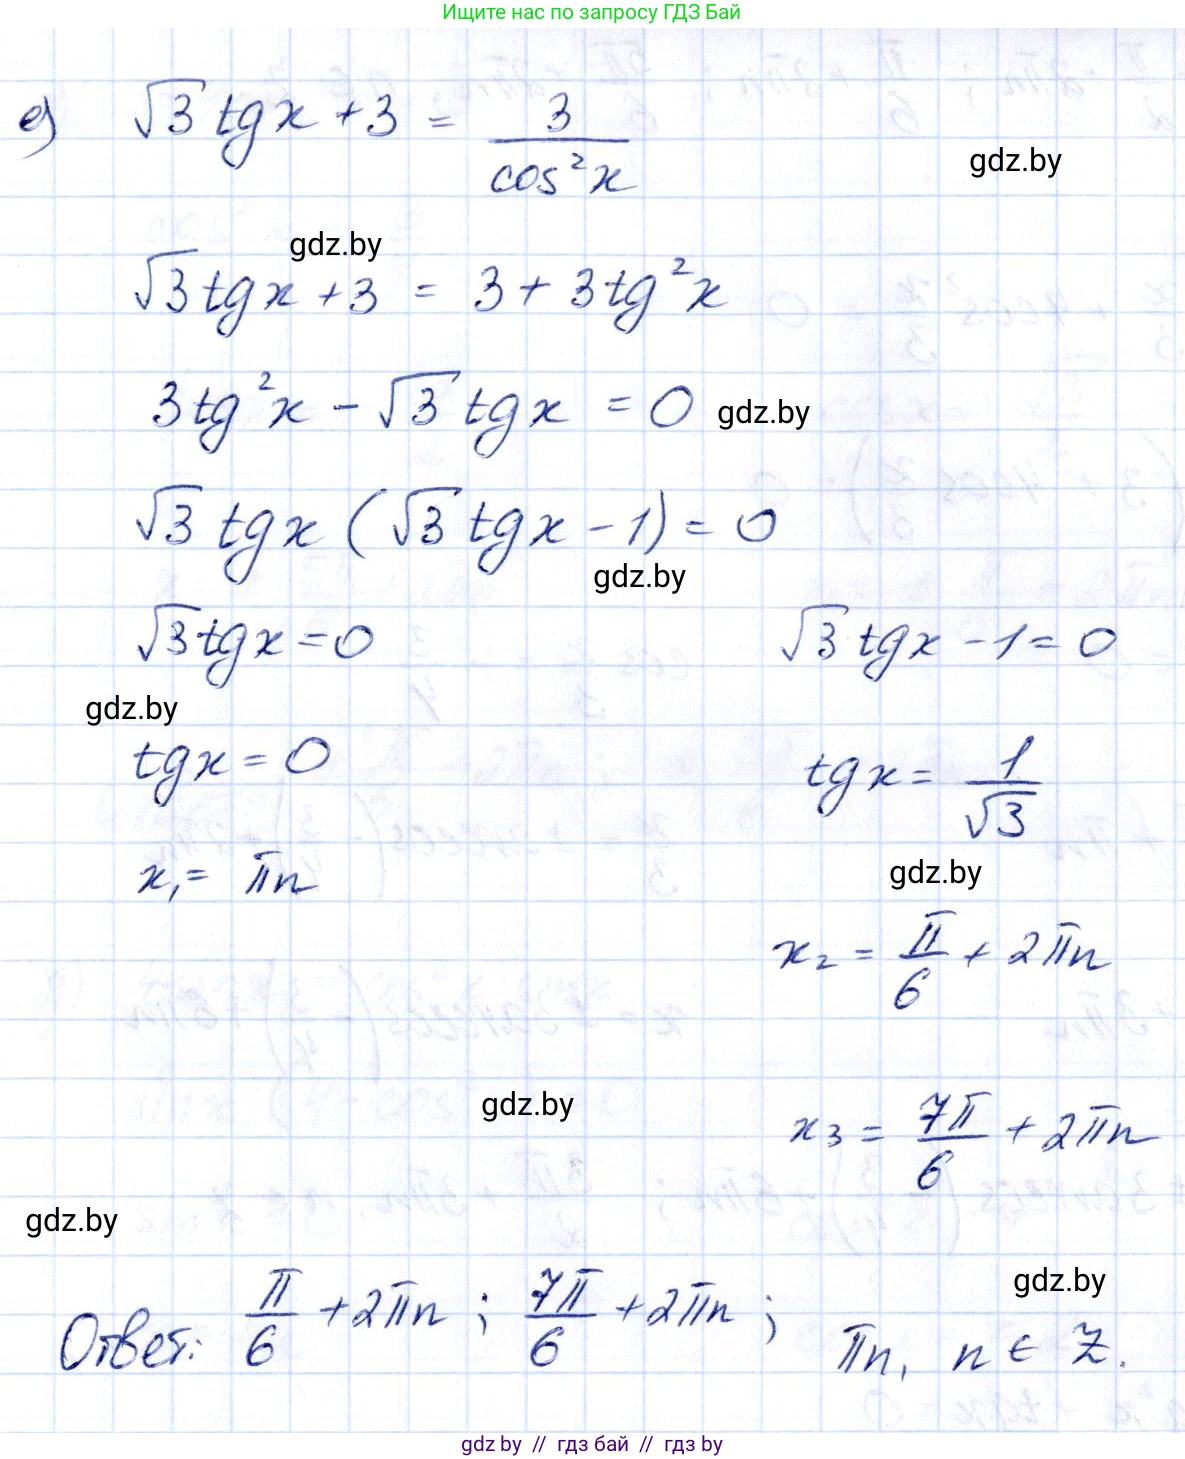 Ищите нас по запросу ГДЗ Бай
е) √3 tgx + 3 = 3/cos²x
gdz.by
gdz.by
√3 tgx + 3 = 3 + 3tg²x
3tg²x - √3 tgx = 0
gdz.by
√3 tgx (√3 tgx - 1) = 0
gdz.by
√3 tgx = 0 √3 tgx - 1 = 0
gdz.by
tgx = 0 tgx = 1/√3
x₁ = πn
gdz.by
x₂ = π/6 + 2πn
gdz.by
x₃ = 7π/6 + 2πn
gdz.by
gdz.by
Ответ: π/6 + 2πn ; 7π/6 + 2πn ; πn, n ∈ Z.
gdz.by // гдз бай // гдз by